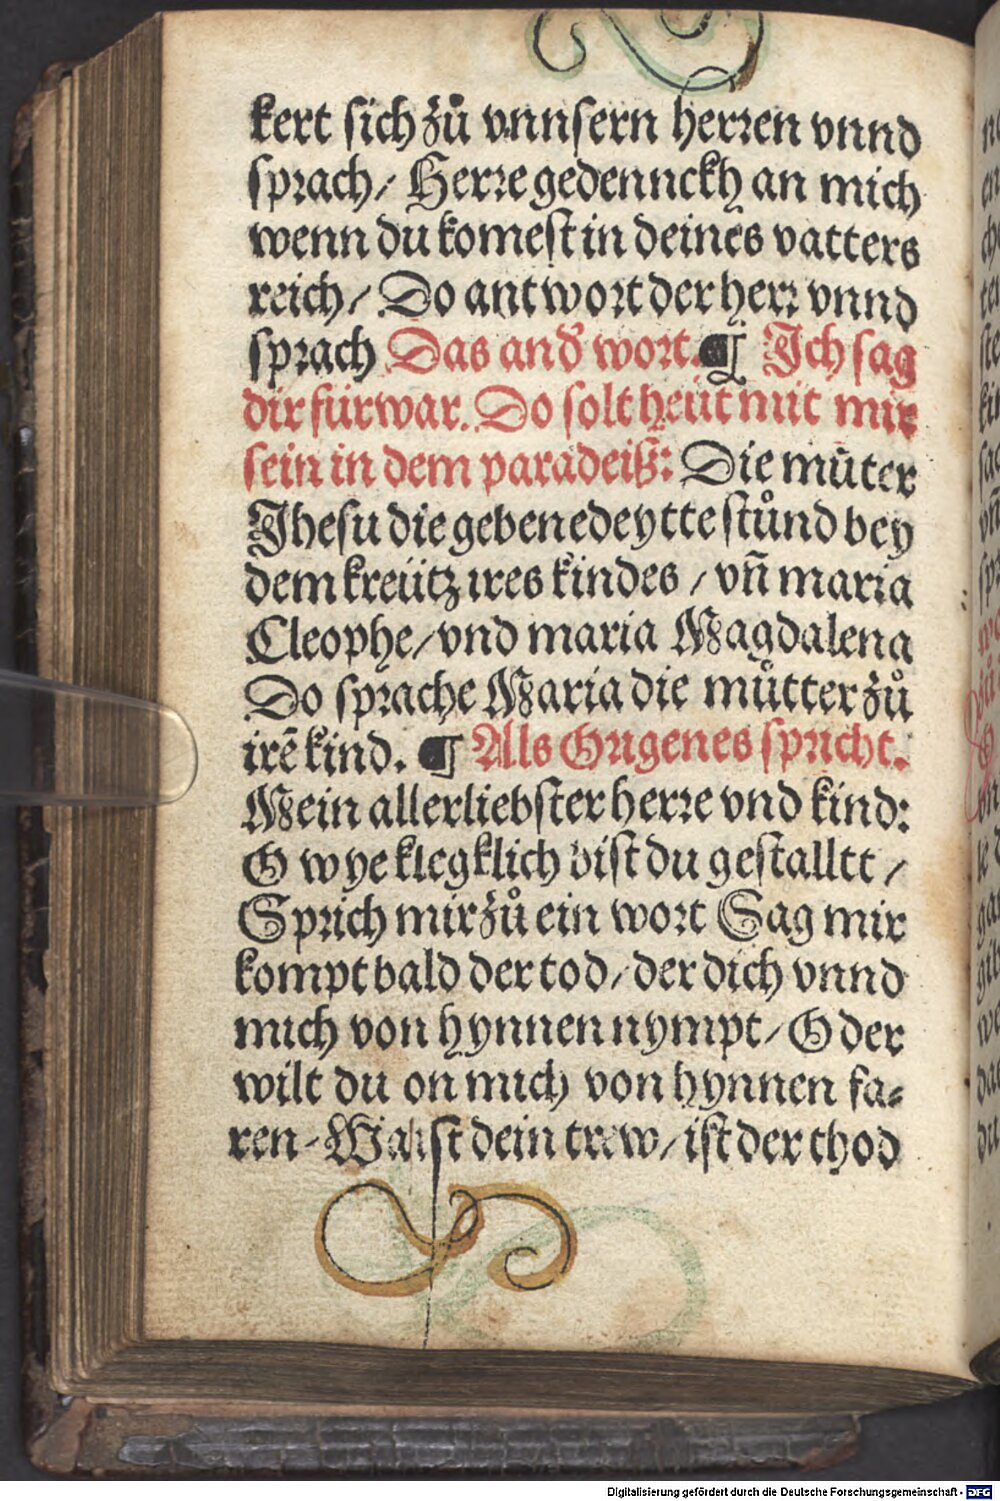 kert sich zů vnnsern herren vnnd
sprach/ Herre gedennckh an mich
wenn du komest in deines vatters
reich/ Do antwort der herr vnnd
sprach Das and̕ wort. ¶ Ich sag
dir fürwar. Do solt heüt mit mir
sein in dem paradeiß: Die můter
Jhesu die gebenedeytte stůnd bey
dem kreütz ires kindes / vñ maria
Cleophe/ vnd maria Magdalena
Do sprache Maria die můtter zů
irẽ kind. ¶ Als Origenes spricht.
Mein allerliebster herre vnd kind:
O wye klegklich bist du gestalltt /
Sprich mir zů ein wort Sag mir
kompt bald der tod/ der dich vnnd
mich von hynnen nympt/ O der
wilt du on mich von hynnen fa⸗
ren - Wa ist dein trew/ ist der thod
Digitalisierung gefördert durch die Deutsche Forschungsgemeinschaft - DFG